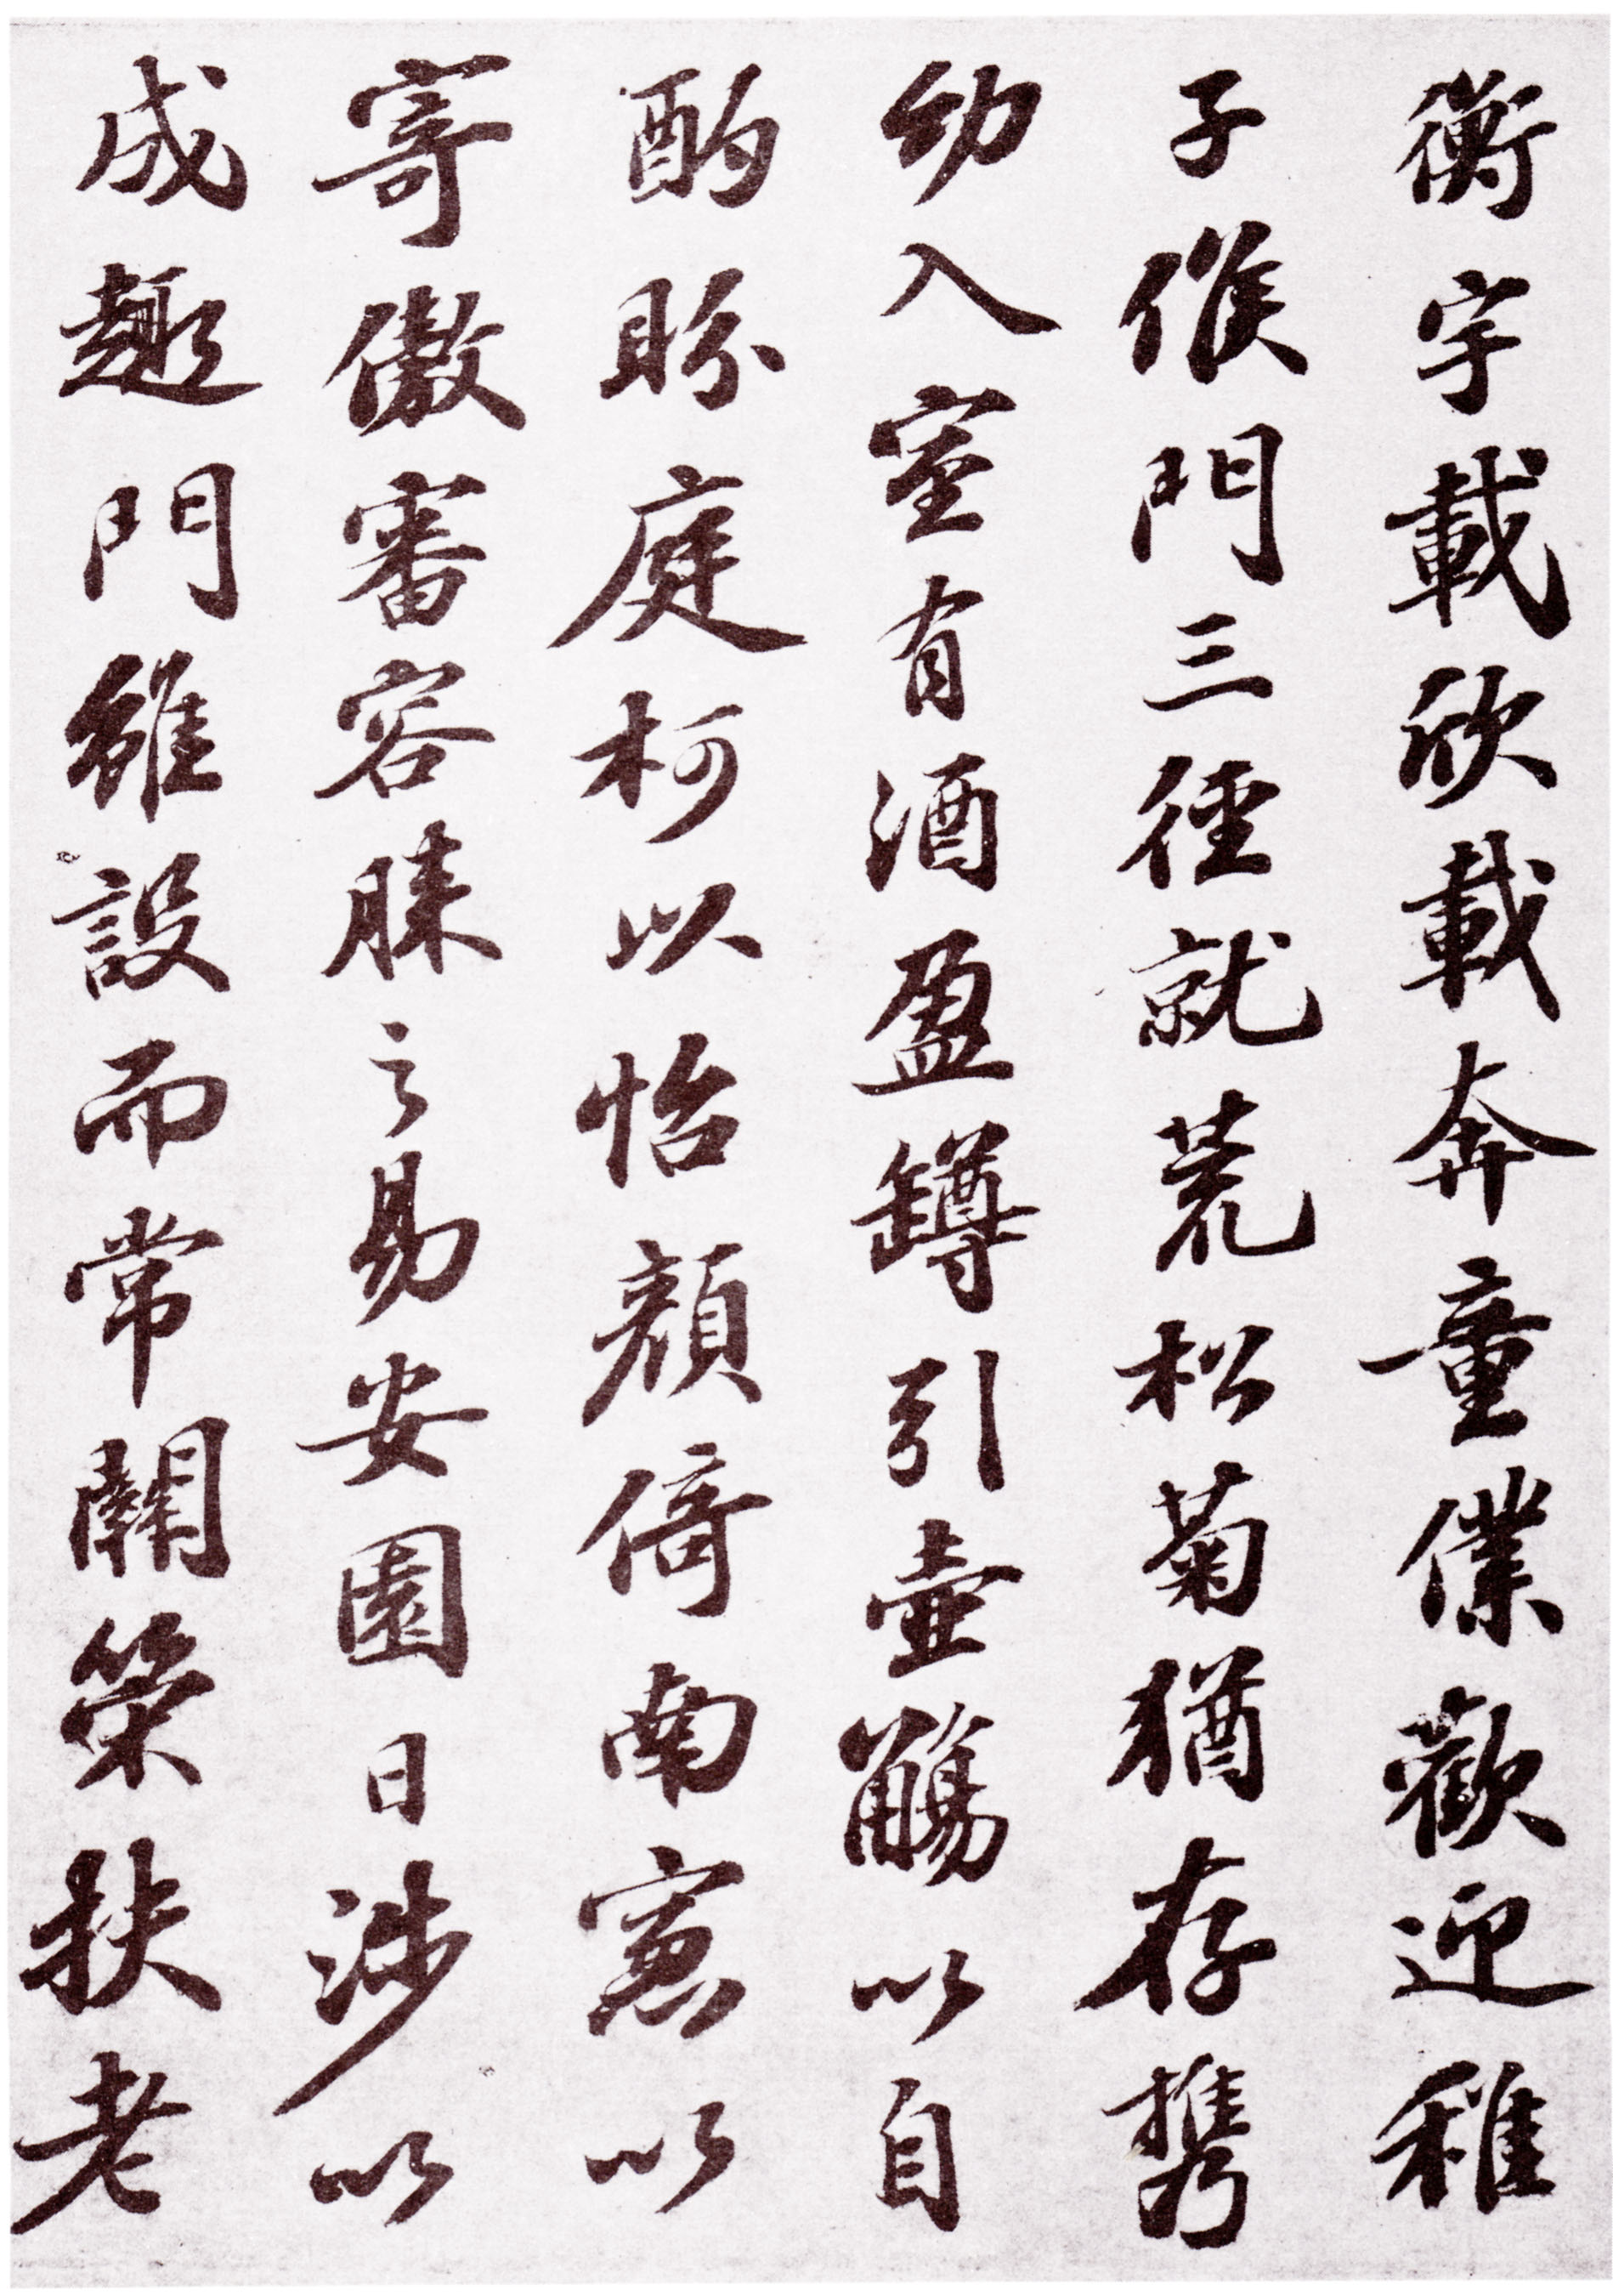 衡宇載欣載奔童僕歡迎稚
子候門三徑就荒松菊猶存攜
幼入室有酒盈罇引壺觴以自
酌眄庭柯以怡顏倚南窻以
寄傲審容膝之易安園日涉以
成趣門雖設而常關策扶老